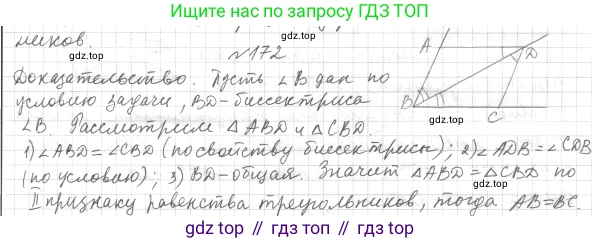 Ищите нас по запросу
ГДЗ ТОП
ников.
№172
A
D
B
C
Доказательство. Пусть ∠B дан по
условию задачи, BD-биссектриса
∠B. Рассмотрим △ABD и △CBD.
1) ∠ABD = ∠CBD (по свойству биссектрисы); 2) ∠ADB = ∠CDB
(по условию); 3) BD-общая. Значит △ABD = △CBD по
II признаку равенства треугольников, тогда AB=BC.
gdz.top
gdz.top
gdz.top
gdz.top
gdz.top
gdz.top
gdz.top // gdz.top // gdz.top